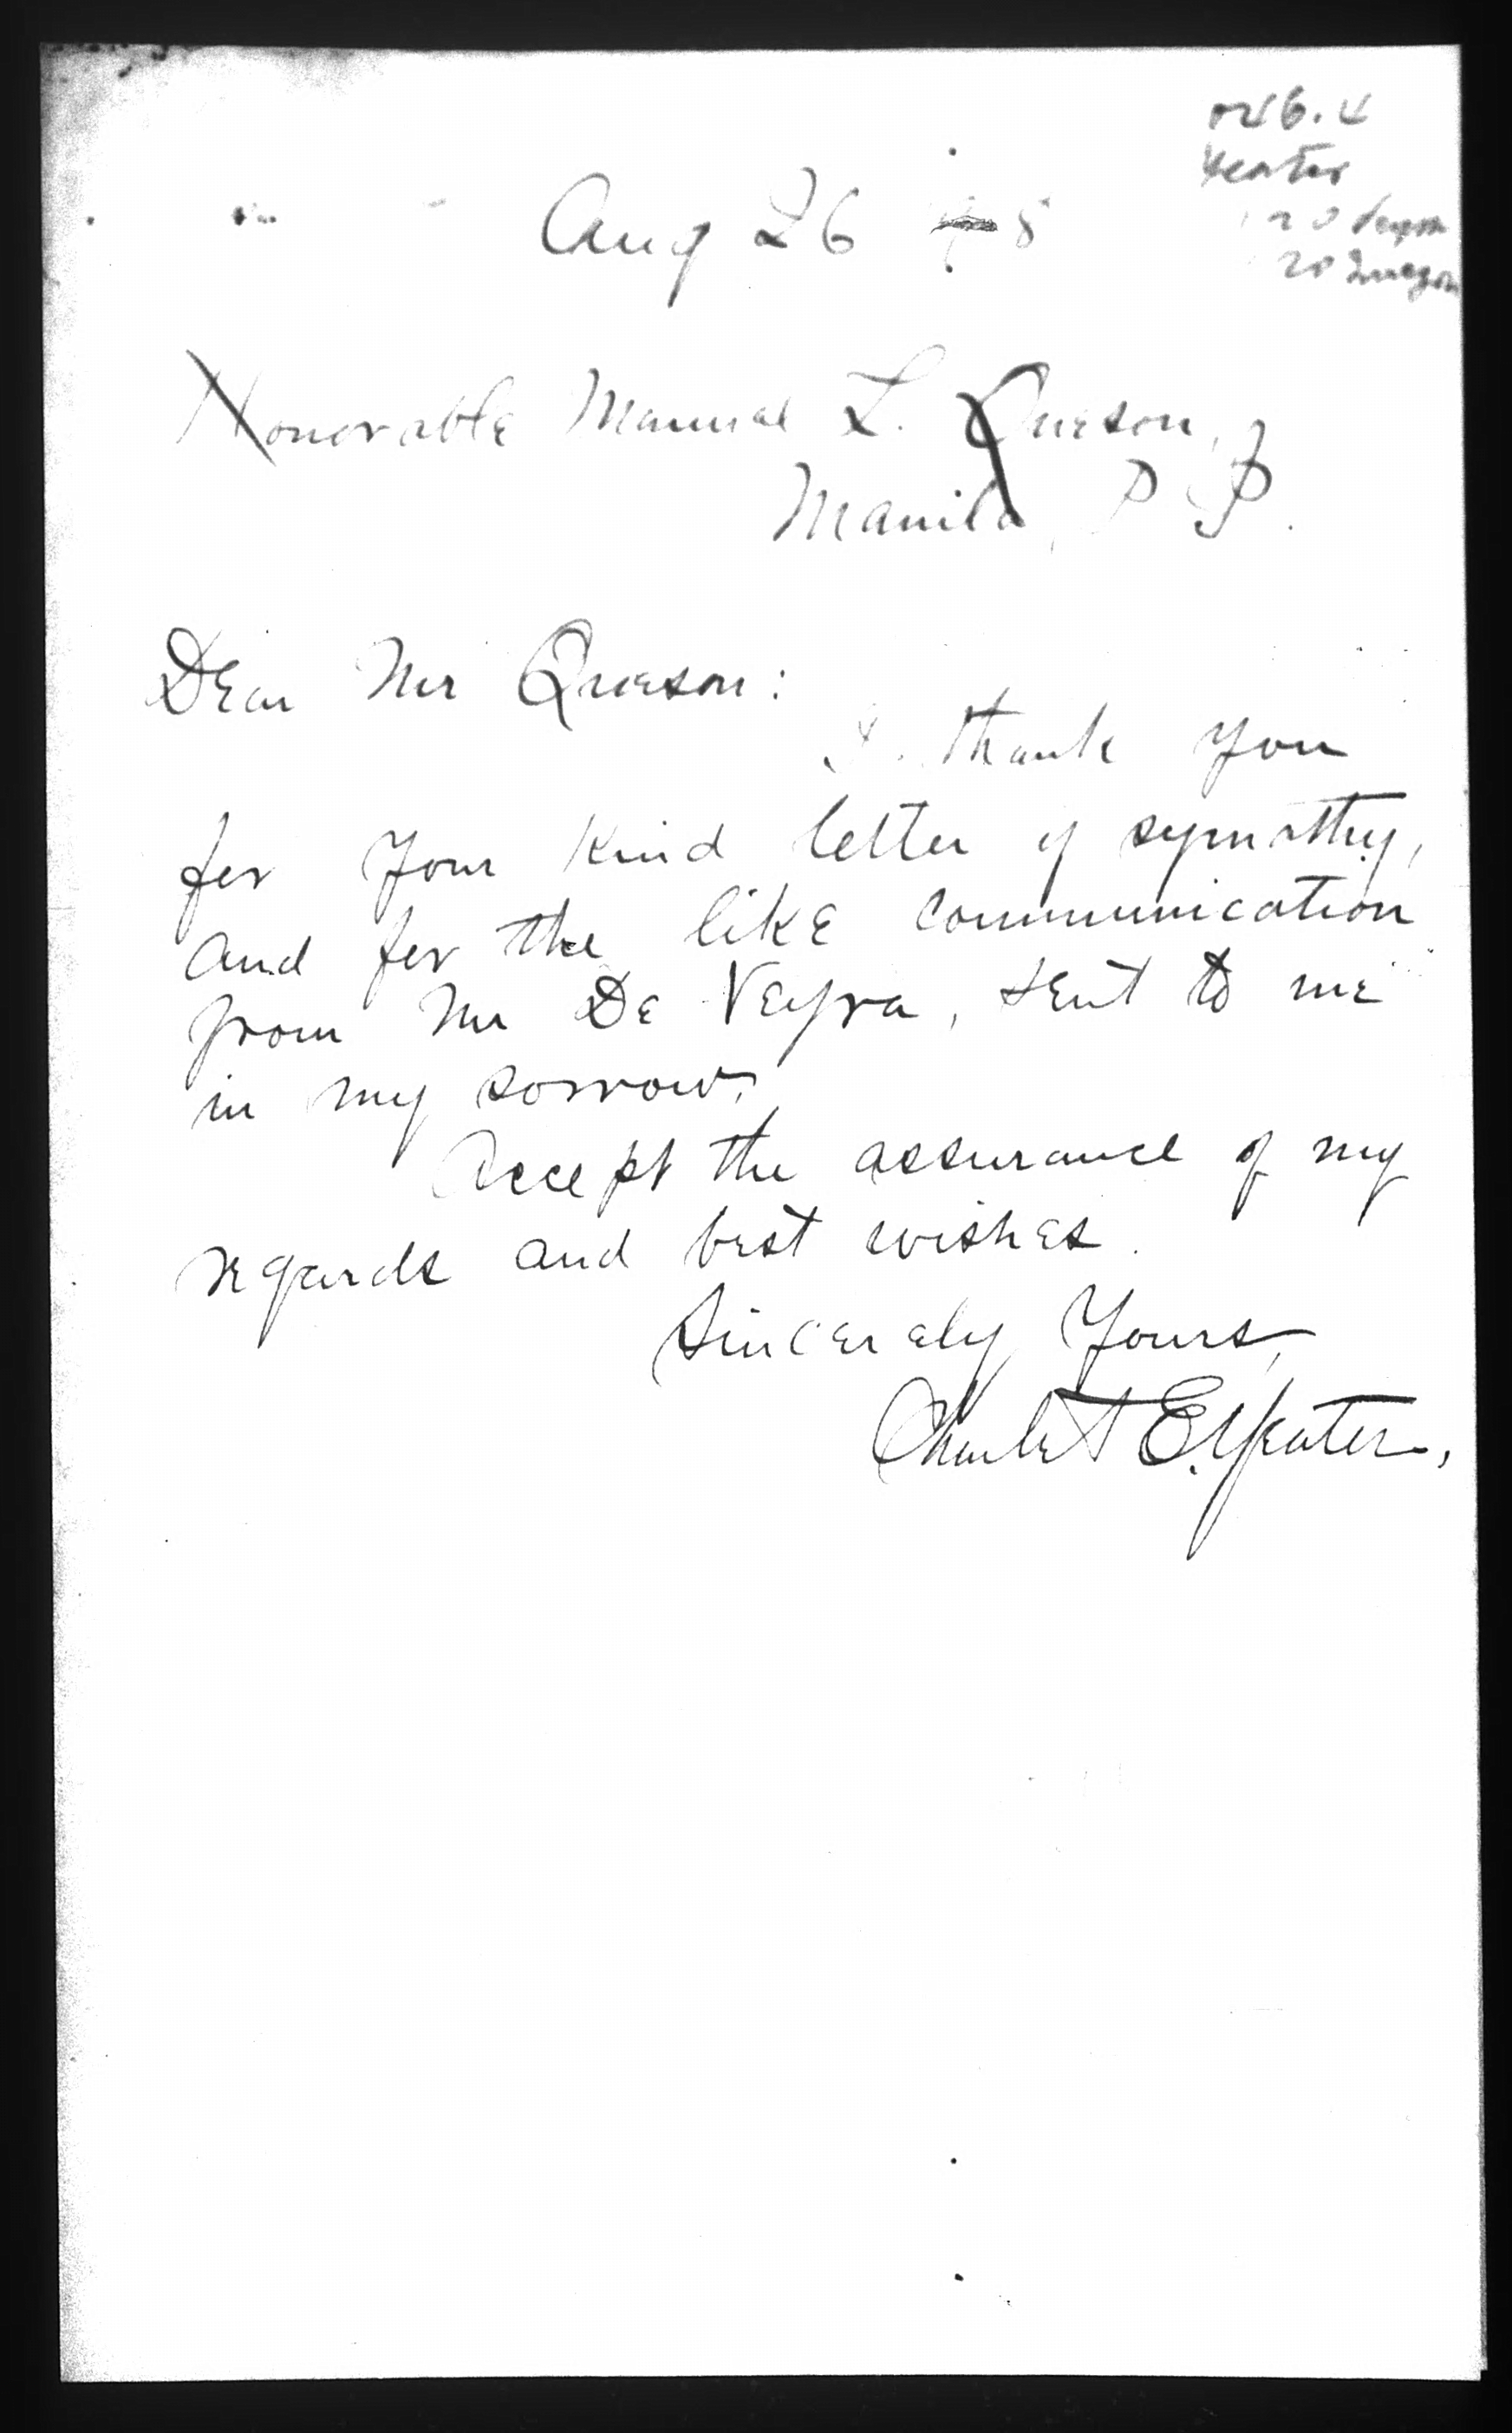 Yeater
Aug 26
Honorable Manuel L. Queson,
Manila, P. I.
Dear Mr Queson:
I thank you
for your kind letter of sympathy,
and for the like communication
from Mr De Veyra, sent to me
in my sorrow.
Accept the assurance of my
regards and best wishes.
Sincerely Yours,
Charles E. Yeater.